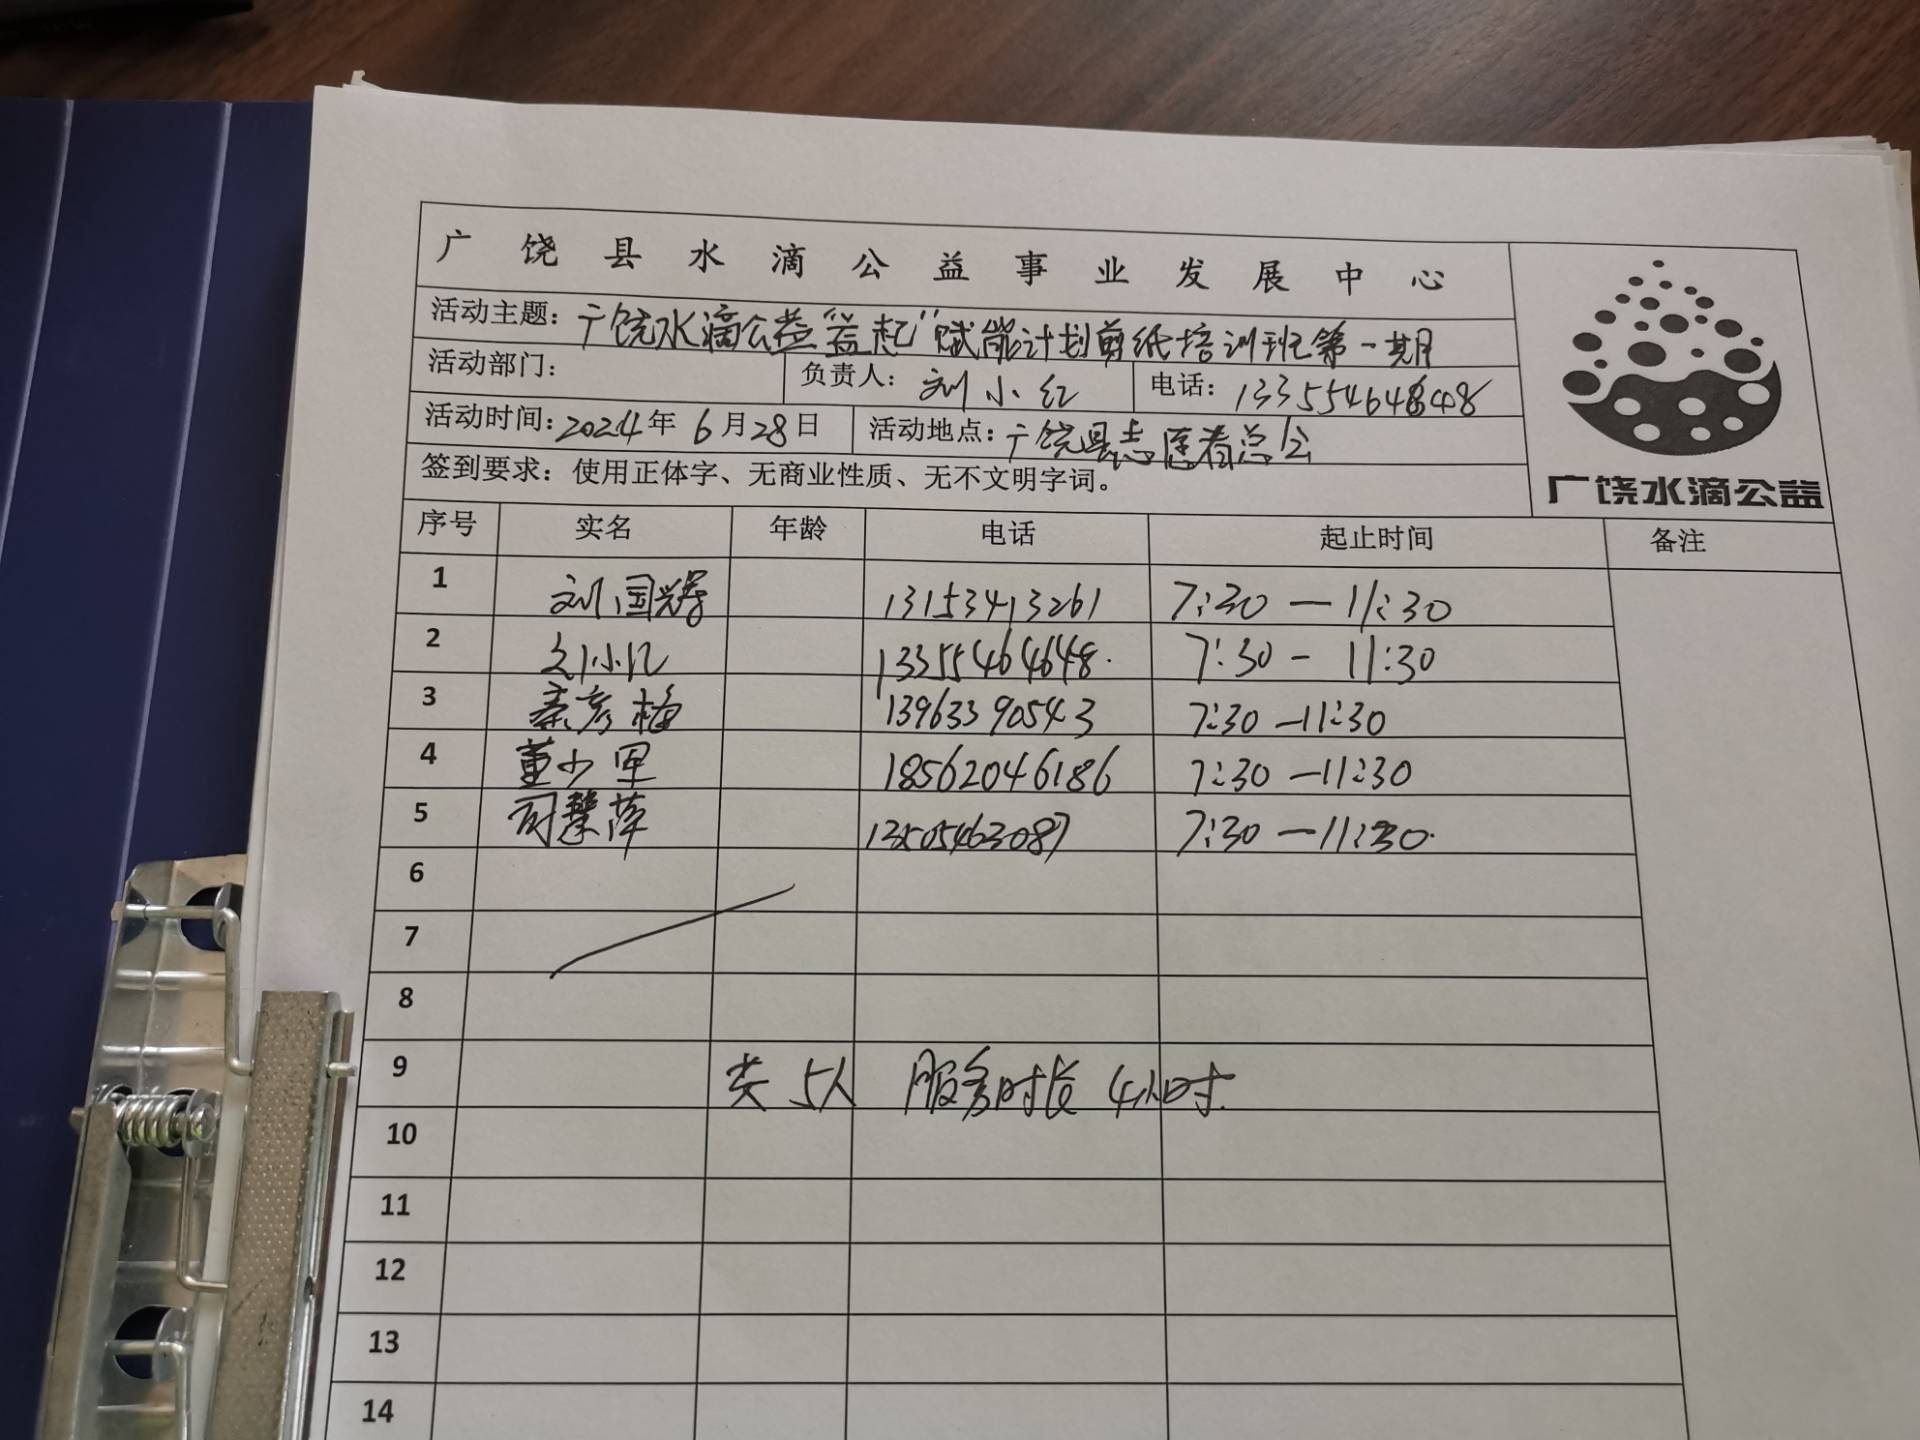 广饶县水滴公益事业发展中心
活动主题：广饶水滴公益"益起"赋能计划剪纸培训班第一期
活动部门： 负责人：刘小红 电话：13355464848
活动时间：2024年6月28日 活动地点：广饶县志愿者总会
签到要求：使用正体字、无商业性质、无不文明字词。
广饶水滴公益
序号 实名 年龄 电话 起止时间 备注
1 刘国辉 13153413261 7:30 — 11:30
2 刘小 13355464648. 7:30 - 11:30
3 秦彦梅 13963390543 7:30 — 11:30
4 董少军 18562046186 7:30 — 11:30
5 司慧萍 13505463087 7:30 — 11:30.
6
7
8
9 共5人 服务时长4小时.
10
11
12
13
14